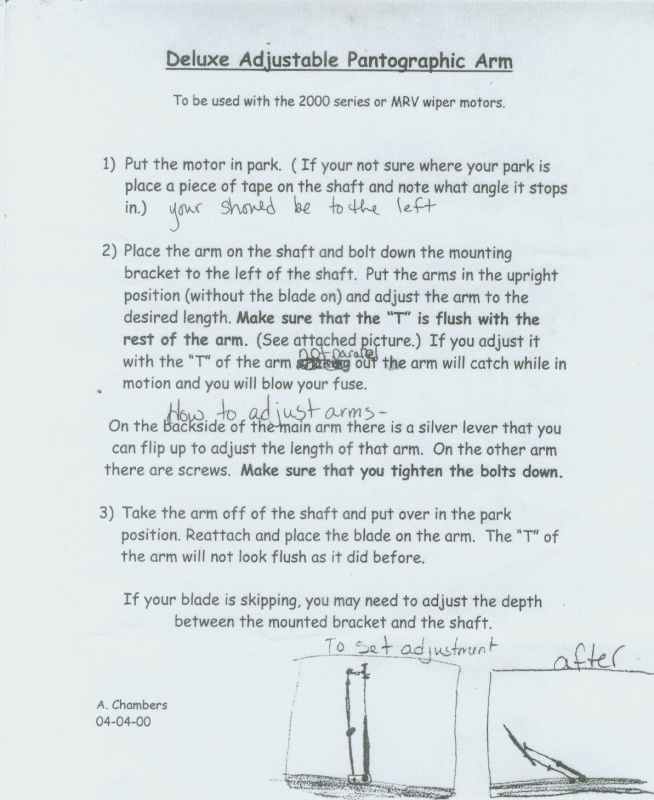 Deluxe Adjustable Pantographic Arm
To be used with the 2000 series or MRV wiper motors.
1) Put the motor in park. ( If your not sure where your park is
place a piece of tape on the shaft and note what angle it stops
in.) your should be to the left
2) Place the arm on the shaft and bolt down the mounting
bracket to the left of the shaft. Put the arms in the upright
position (without the blade on) and adjust the arm to the
desired length. Make sure that the “T” is flush with the
rest of the arm. (See attached picture.) If you adjust it
not parallel
with the “T” of the arm out the arm will catch while in
motion and you will blow your fuse.
How to adjust arms-
On the backside of the main arm there is a silver lever that you
can flip up to adjust the length of that arm. On the other arm
there are screws. Make sure that you tighten the bolts down.
3) Take the arm off of the shaft and put over in the park
position. Reattach and place the blade on the arm. The “T” of
the arm will not look flush as it did before.
If your blade is skipping, you may need to adjust the depth
between the mounted bracket and the shaft.
To set adjustment
after
A. Chambers
04-04-00